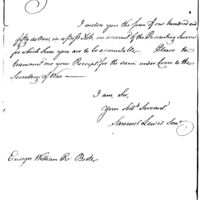 I inclose you the sum of one hundred and
fifty dollars, in a post Note, on account of the Recruiting Service
for which Sum you are to be accountable. Please to
transmit me your Receipt for the same, under Cover to the
Secretary of War —
I am Sir,
Your Obt Servant
Samuel Lewis Senr
Ensign William R.